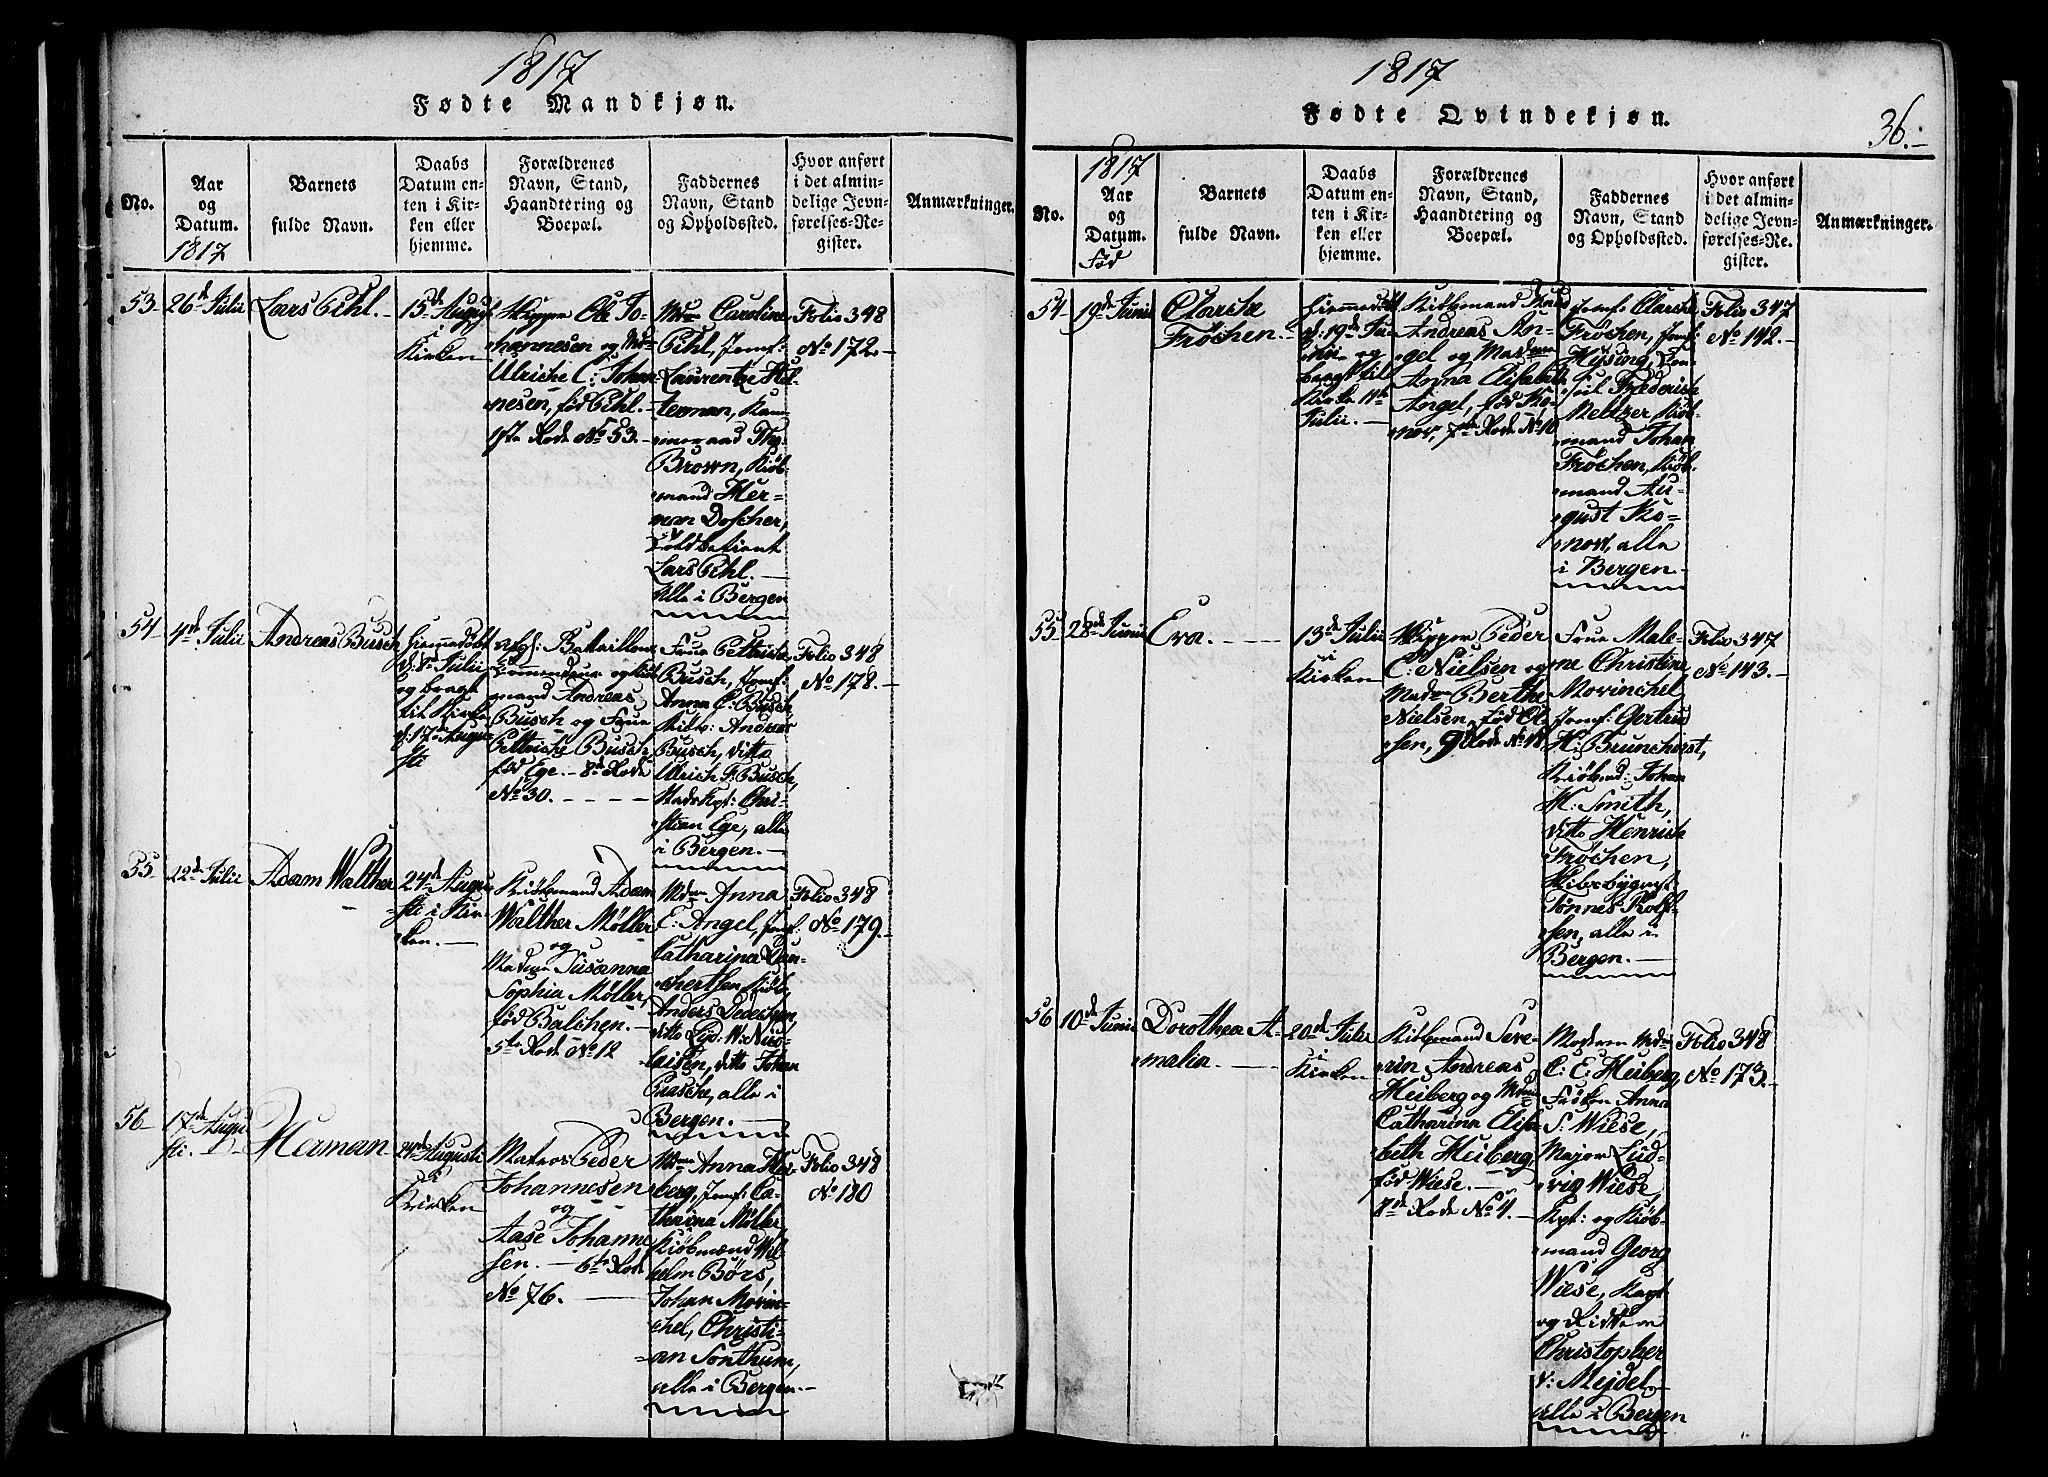 1817
Fødte Mandkjøn.
No.
Aar
og
Datum.
1817
Barnets
fulde Navn.
Daabs
Datum en-
ten i Kir-
ken eller
hjemme.
Forældrenes
Navn, Stand,
Haandtering og
Boepæl.
Faddernes
Navn, Stand
og Opholdssted.
Hvor anført
i det almin-
delige Jevn-
førelses-Re-
gister.
Anmærkninger.
53
26de Julii
Lars Pihl.
15de August
i
Kirken
Skipper Ole Jo-
hannesen og Md
Ulriche C: Johan
nesen, fød Pihl.
1ste Rode No 53.
Mdme Caroline
Pihl, Jomf:
Laurentze Hel-
terman, Kam-
meraad Thg.
Brown, Kiøb-
mand Her-
man Doscher,
Toldbetient
Lars Pihl.
Alle i Bergen
Folio 348
No 172.
54
4de Julii
Andreas Busch
hiemmedøbt
d: 8de Julii
og bragt
til Kirke
d: 17de Augu
sti
Afg: Batailions
Commandeur og Kiøb
mand Andreas
Busch og Frue
Pettriche Busch
fød Ege. - 8de Rode
No 30.
Frue Pettriche
Busch, Jomf:
Anna C: Busch
Kiøbm: Andreas
Busch, ditto
Ulrich F: Busch,
Stadskpt: Chri-
stian Ege, alle
i Bergen.
Folio 348
No 178.
55
12de Julii
Adam Walther
24de Augu
sti i Kir-
ken.
Kiøbmand Adam
Walther Møller
og
Madme Susanna
Sophia Møller,
fød Balchen.
5te Rode No 12
Mdme Anna
E: Angel, Jomf:
Catharina Dan-
chertsen, Kiøb.
Anders Dedechen,
ditto Lyd: W: Nico-
laisen, ditto Johan
Prasche, alle i
Bergen.
Folio 348
No 179.
56
17de Augu
sti.
Herman
24de Augusti
i
Kirken
Matros Peder
Johannesen
og
Aase Johanne
sen. - 6te Rode
No 76.
Mdme Anna Hei-
berg, Jomf: Ca-
tharina Møller,
Kiøbmænd Wil-
helm Börs,
Johan Movin-
chel, Christi-
an Sonthum,
alle i Bergen.
Folio 348
No 180
1817
Fødte Qvindekjøn.
36.
No.
1817
Aar
og
Datum.
Fød
Barnets
fulde Navn.
Daabs
Datum en-
ten i Kir-
ken eller
hjemme.
Forældrenes
Navn, Stand,
Haandtering og
Boepæl.
Faddernes
Navn, Stand
og Opholdssted.
Hvor anført
i det almin-
delige Jevn-
førelses-Re-
gister.
Anmærkninger.
54
19de Junii
Clarche
Fröchen.
hiemmedøbt
d: 19de Ju
nii og
bragt til
Kirke 11te
Julii.
Kiøbmand
Andreas An-
gel og Madme
Anna Elisabeth
Angel, fød Ko-
now, 7de Rode No 10
Jomf: Clarche
Fröchen, Jomf:
Hysing, Con-
sul Frederich
Meltzer Kiøb-
mand Johan
Fröchen, Kiøb-
mand Au-
gust Ko-
now, alle
i Bergen.
Folio 347
No 142.
55
28de Junii
Eva.
13de Julii
i
Kirken
Skipper Peder
C: Nielsen og
Madme Berthe
Nielsen, fød Ol
sen, 9de Rode No 18
Frue Male-
ne Christine
Movinchel
Jomf: Gertrud
H: Brunchorst,
Kiøbmd: Johan
H: Smith,
ditto Henrich
Fröchen,
Skibsbygmst
Tönnes Rolf-
sen, alle i
Bergen.
Folio 347
No 143.
56
10de Junii
Dorothea A-
malia.
20de Julii
i
Kirken
Kiøbmand Seve-
rin Andreas
Heiberg og Mdme
Catharina Elisa
beth Heiberg,
fød Wiese.
8de Rode No 4.
Moderen Mdme
C: E: Heiberg,
Frøken Anna
S: Wiese,
Major Lud-
vig Wiese,
Kpt: og Kiøb-
mand Georg
Wiese, Kapt
og Ridder
Christopher
v: Mejdel
alle i Bergen
Folio 348
No 173.